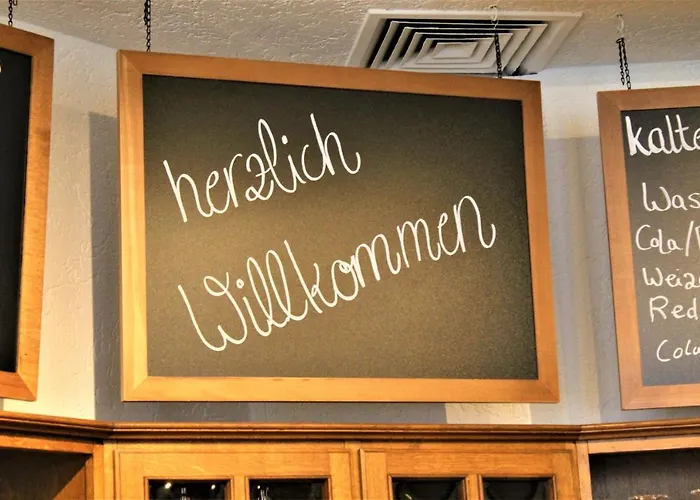 herzlich
Willkommen
kalte
Cola/
Red
Cola